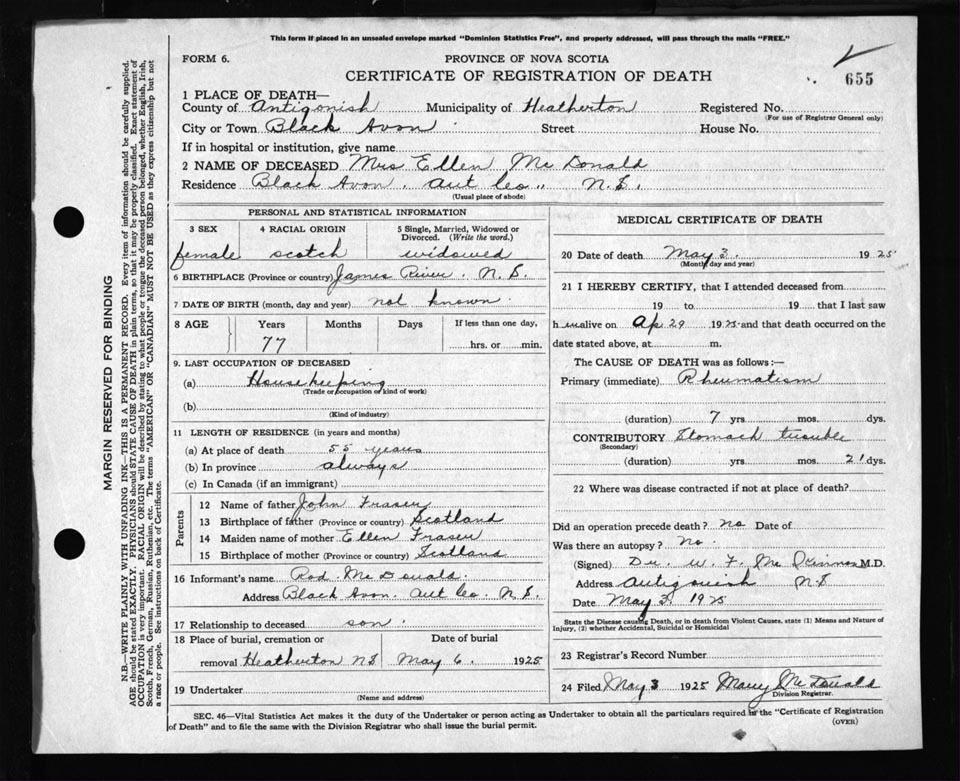 This form if placed in an unsealed envelope marked "Dominion Statistics Free", and properly addressed, will pass through the mails "FREE."
FORM 6.
PROVINCE OF NOVA SCOTIA
CERTIFICATE OF REGISTRATION OF DEATH
655
1 PLACE OF DEATH—
County of Antigonish Municipality of Heatherton Registered No.
(For use of Registrar General only)
City or Town Black Avon Street House No.
If in hospital or institution, give name
2 NAME OF DECEASED Mrs Ellen McDonald
Residence Black Avon. Ant Co., N.S.
(Usual place of abode)
PERSONAL AND STATISTICAL INFORMATION
3 SEX 4 RACIAL ORIGIN 5 Single, Married, Widowed or Divorced. (Write the word.)
female scotch widowed
6 BIRTHPLACE (Province or country) James River. N.S.
7 DATE OF BIRTH (month, day and year) not known
8 AGE Years Months Days If less than one day,
77 hrs. or min.
9. LAST OCCUPATION OF DECEASED
(a) Housekeeping
(Trade or occupation or kind of work)
(b)
(Kind of industry)
11 LENGTH OF RESIDENCE (in years and months)
(a) At place of death 55 years
(b) In province always
(c) In Canada (if an immigrant)
Parents
12 Name of father John Fraser
13 Birthplace of father (Province or country) Scotland
14 Maiden name of mother Ellen Fraser
15 Birthplace of mother (Province or country) Scotland
16 Informant's name Rod. McDonald.
Address Black Avon. Ant Co. N.S.
17 Relationship to deceased son.
18 Place of burial, cremation or Date of burial
removal Heatherton NS May 6. 1925
19 Undertaker
(Name and address)
MEDICAL CERTIFICATE OF DEATH
20 Date of death May 3. 1925
(Month, day and year)
21 I HEREBY CERTIFY, that I attended deceased from
19 to 19 that I last saw
h alive on Ap 29 1925 and that death occurred on the
date stated above, at m.
The CAUSE OF DEATH was as follows:—
Primary (immediate) Rheumatism
(duration) 7 yrs. mos. dys.
CONTRIBUTORY Stomach trouble
(Secondary)
(duration) yrs. mos. 21 dys.
22 Where was disease contracted if not at place of death?
Did an operation precede death? no Date of
Was there an autopsy? No.
(Signed) Dr. W. F. McKinnon M.D.
Address Antigonish NS
Date May 3. 1925
State the Disease causing Death, or in death from Violent Causes, state (1) Means and Nature of
Injury, (2) whether Accidental, Suicidal or Homicidal
23 Registrar's Record Number
24 Filed May 3 1925 Mary McDonald
Division Registrar.
SEC. 46—Vital Statistics Act makes it the duty of the Undertaker or person acting as Undertaker to obtain all the particulars required in the "Certificate of Registration
of Death" and to file the same with the Division Registrar who shall issue the burial permit.
(OVER)
MARGIN RESERVED FOR BINDING
N.B—WRITE PLAINLY WITH UNFADING INK—THIS IS A PERMANENT RECORD. Every item of information should be carefully supplied.
AGE should be stated EXACTLY. PHYSICIANS should STATE CAUSE OF DEATH in plain terms, so that it may be properly classified. Exact statement of
OCCUPATION is very important. RACIAL ORIGIN will be described by stating to what people or tongue the deceased person belonged, whether English, Irish,
Scotch, French, German, Russian, Ruthenian, etc. The terms "AMERICAN" OR "CANADIAN" MUST NOT BE USED as they express citizenship but not
a race or people. See instructions on back of Certificate.